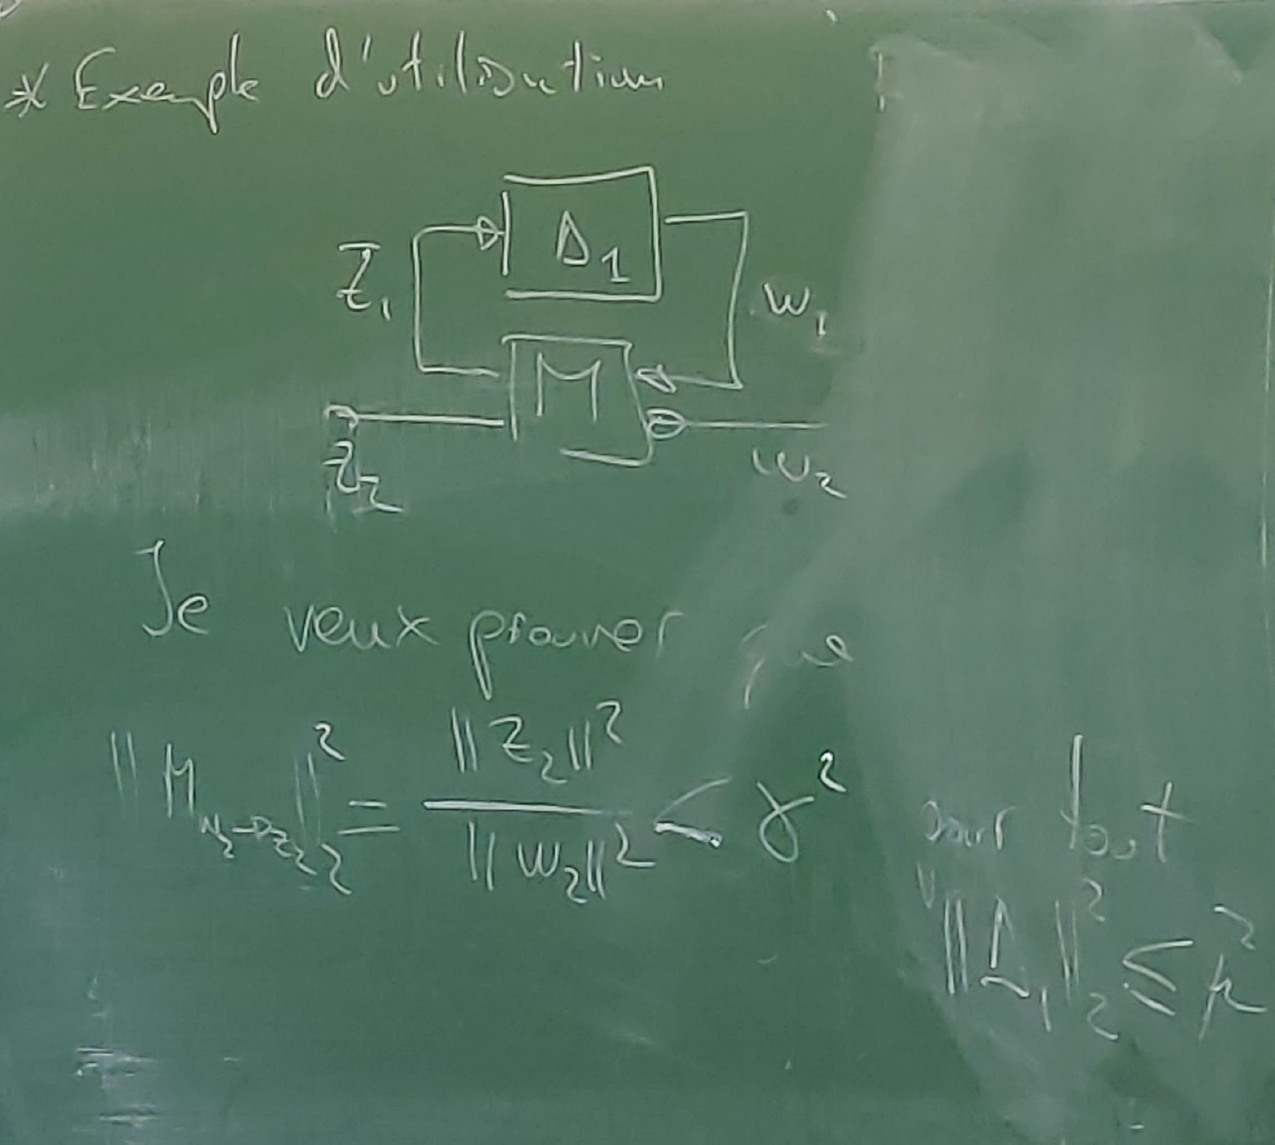 * Exemple d'utilisation
Δ1
z1
w1
M
z2
w2
Je veux prouver que
||M w2→z2||²₂ = ||z2||² / ||w2||² < γ² pour tout
||Δ1||²₂ ≤ μ²